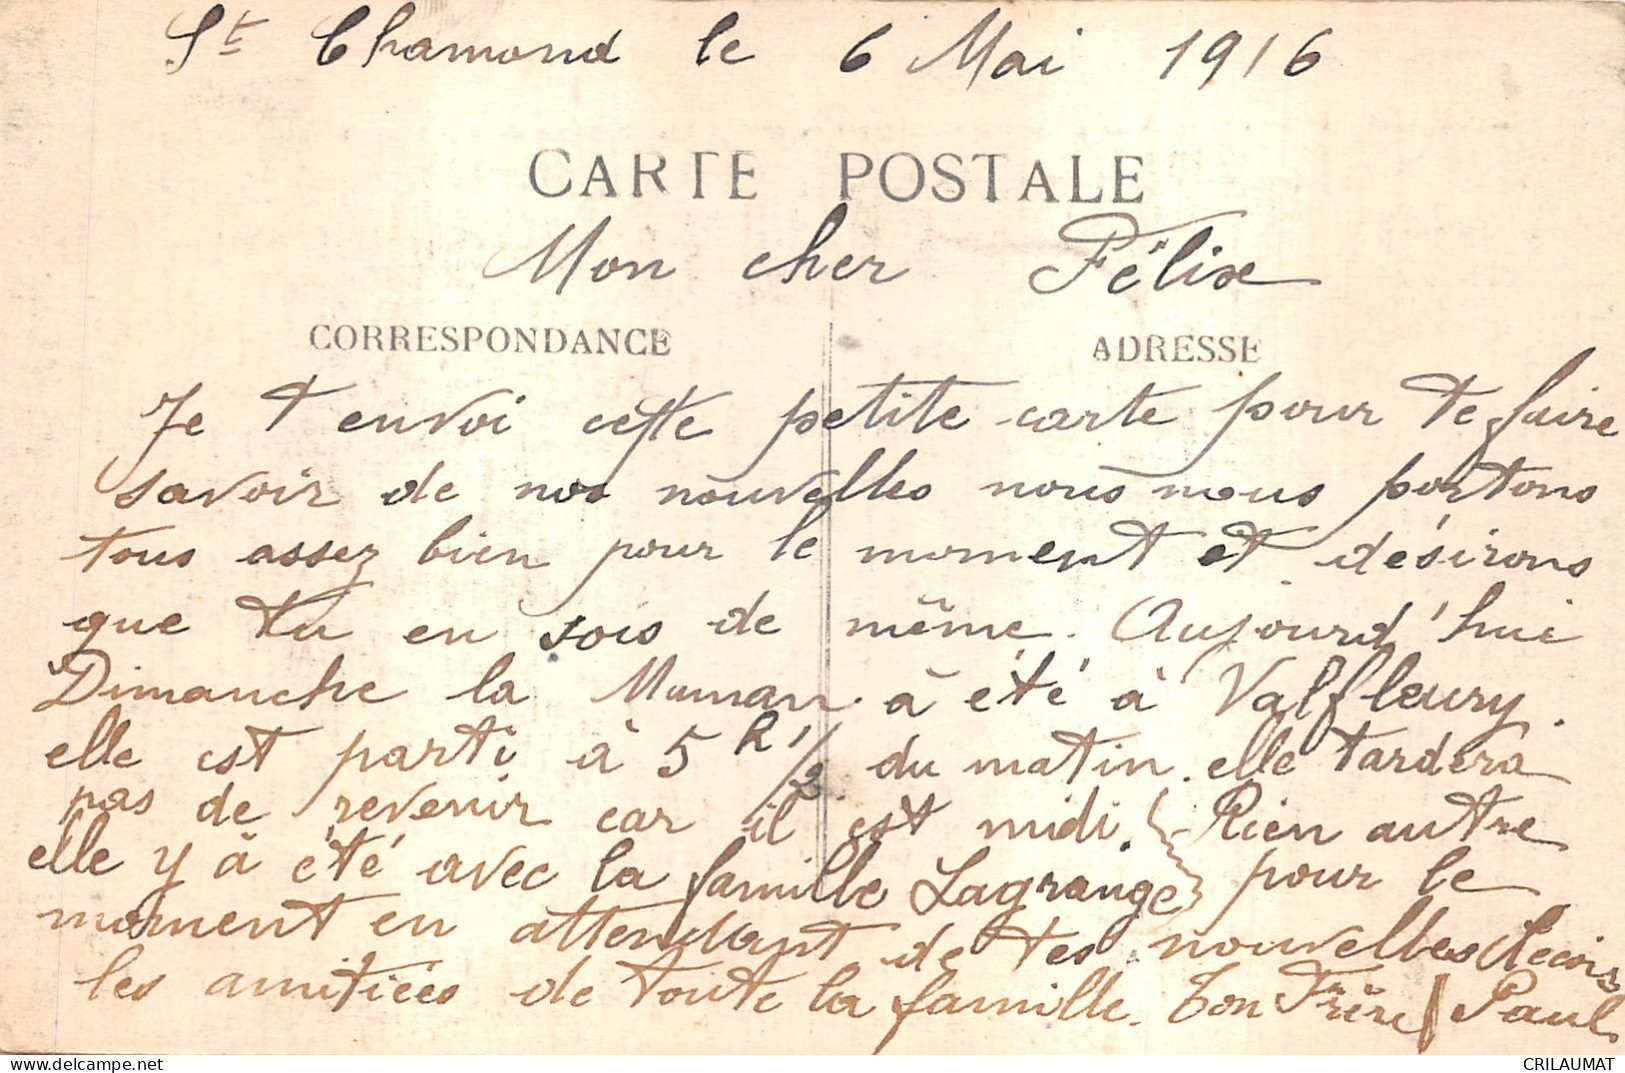 St Chamond le 6 Mai 1916
CARTE POSTALE
Mon cher Félix
CORRESPONDANCE ADRESSE
Je t envoi cette petite carte pour te faire
savoir de nos nouvelles nous nous portons
tous assez bien pour le moment et désirons
que tu en sois de même. Aujourd'hui
Dimanche la Maman à été à Valfleury.
elle est parti à 5 h 1/2 du matin. elle tardera
pas de revenir car il est midi. Rien autre
elle y à été avec la famille Lagrange pour le
moment en attendant de tes nouvelles Recois
les amitiées de toute la famille. Ton Frère Paul
CRILAUMAT